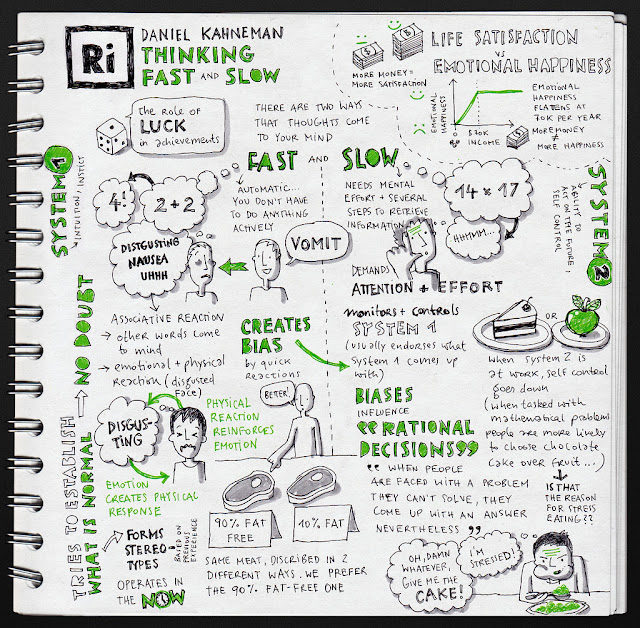 Ri
DANIEL KAHNEMAN
THINKING
FAST AND SLOW
LIFE SATISFACTION
VS
EMOTIONAL HAPPINESS
MORE MONEY =
MORE SATISFACTION
EMOTIONAL
HAPPINESS
$70K
INCOME
EMOTIONAL
HAPPINESS
FLATENS AT
70K PER YEAR
MORE MONEY
≠
MORE HAPPINESS
The Role of
LUCK
in achievements
THERE ARE TWO WAYS
THAT THOUGHTS COME
TO YOUR MIND
FAST AND SLOW
SYSTEM 1
INTUITION, INSTICT
4!
2+2
AUTOMATIC...
YOU DON'T HAVE
TO DO ANYTHING
ACTIVELY
DISTGUSTING
NAUSEA
UHHH
VOMIT
ASSOCIATIVE REACTION
→ other words come
to mind
→ emotional + physical
Reaction (disgusted
face)
CREATES
BIAS
by quick
reactions
NEEDS MENTAL
EFFORT + SEVERAL
STEPS TO RETRIEVE
INFORMATION
14 x 17
HHMMM...
SYSTEM 2
ABILITY TO
ACT ON THE FUTURE,
SELF CONTROL
DEMANDS
ATTENTION + EFFORT
monitors + controls
SYSTEM 1
(usually endorses what
System 1 comes up
with)
OR
when system 2 is
at work, self control
goes down
(when tasked with
mathematical problems
people are more likely
to choose chocolate
cake over fruit...)
IS THAT
THE REASON
FOR STRESS
EATING??
OH, DAMN
WHATEVER,
GIVE ME THE
CAKE!
I'M
STRESSED!
BIASES
INFLUENCE
"RATIONAL
DECISIONS"
" WHEN PEOPLE
ARE FACED WITH A PROBLEM
THEY CAN'T SOLVE, THEY
COME UP WITH AN ANSWER
NEVERTHELESS "
TRIES TO ESTABLISH → NO DOUBT
WHAT IS NORMAL
DISGUS-
TING
PHYSICAL
REACTION
REINFORCES
EMOTION
EMOTION
CREATES PHYSICAL
RESPONSE
FORMS
STEREO-
TYPES
BASED ON
PREVIOUS
EXPERIENCE
OPERATES IN
THE NOW
BETTER!
90% FAT
FREE
10% FAT
SAME MEAT, DISCRIBED IN 2
DIFFERENT WAYS. WE PREFER
THE 90% FAT-FREE ONE